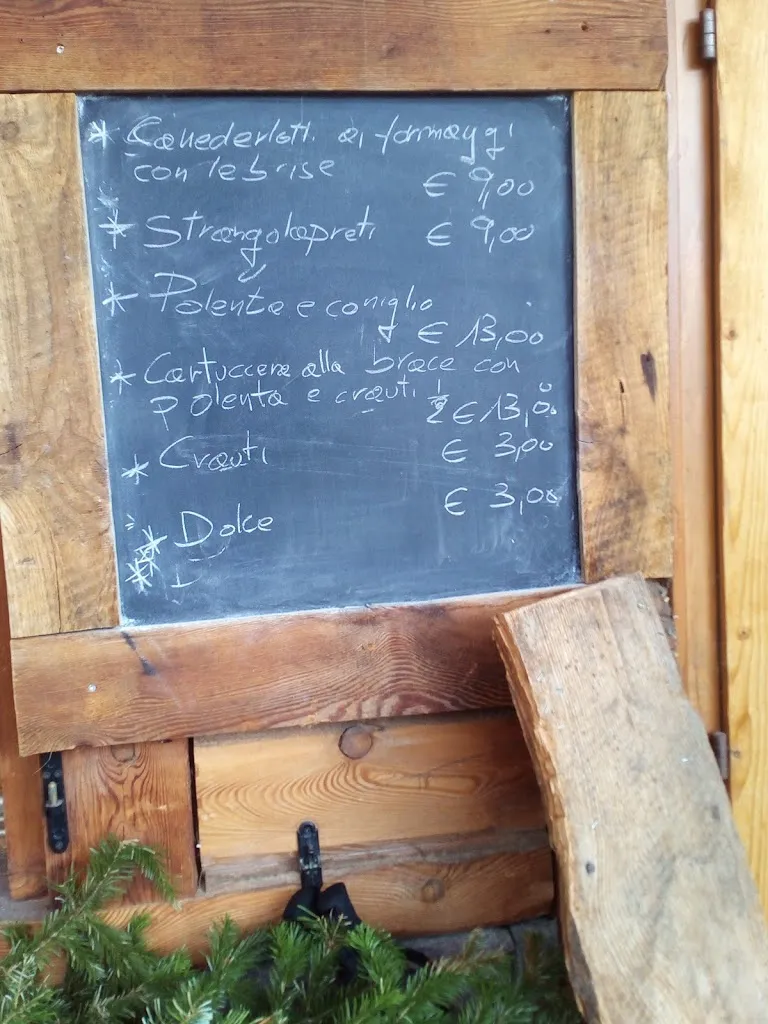 * Canederlotti ai formaggi
con le brise
€ 9,00
* Strangolapreti € 9,00
* Polenta e coniglio
€ 13,00
* Cartuccera alla brace con
polenta e crauti ½ € 13,00
* Crauti € 3,00
* Dolce € 3,00